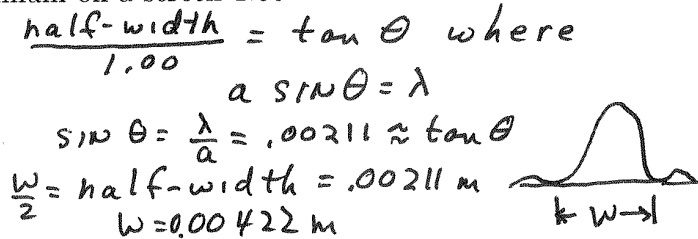 half-width / 1.00 = tan θ where
a sin θ = λ
sin θ = λ/a = .00211 ≈ tan θ
w/2 = half-width = .00211 m
W = 0.00422 m
|← W →|